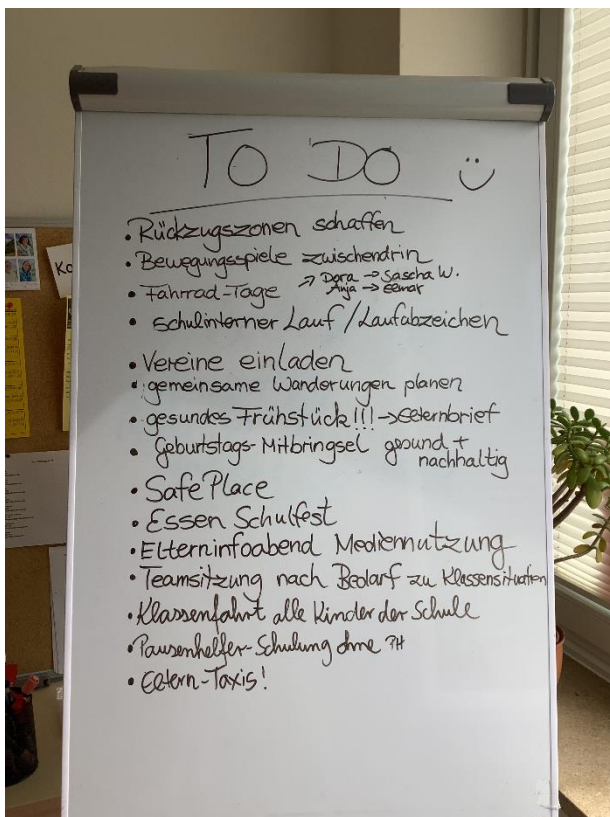 TO DO
• Rückzugszonen schaffen
• Bewegungsspiele zwischendrin
• Fahrrad-Tage ↗ Dora → Sascha W.
Anja → Elmar
• schulinterner Lauf / Laufabzeichen
• Vereine einladen
• gemeinsame Wanderungen planen
• gesundes Frühstück!!! → Elternbrief
• Geburtstags-Mitbringsel gesund +
nachhaltig
• Safe Place
• Essen Schulfest
• Elterninfoabend Mediennutzung
• Teamsitzung nach Bedarf zu Klassensituation
• Klassenfahrt alle Kinder der Schule
• Pausenhelfer-Schulung ohne PH
• Eltern-Taxis!
Ko